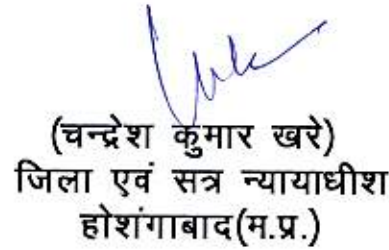 (चन्द्रेश कुमार खरे)
जिला एवं सत्र न्यायाधीश
होशंगाबाद(म.प्र.)